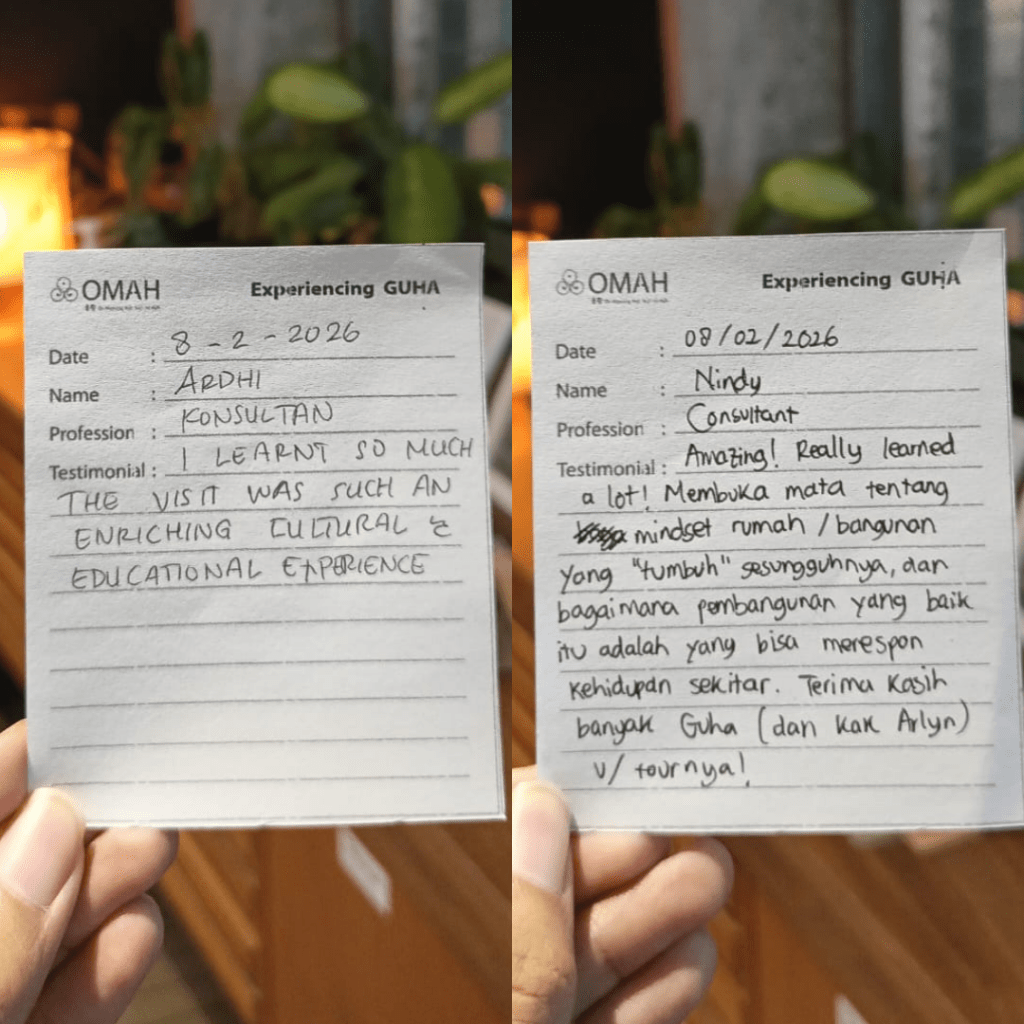 OMAH
Experiencing GUHA
Date : 8 - 2 - 2026
Name : ARDHI
Profession : KONSULTAN
Testimonial : I LEARNT SO MUCH
THE VISIT WAS SUCH AN
ENRICHING CULTURAL &
EDUCATIONAL EXPERIENCE
OMAH
Experiencing GUHA
Date : 08/02/2026
Name : Nindy
Profession : Consultant
Testimonial : Amazing! Really learned
a lot! Membuka mata tentang
mindset rumah / bangunan
yang "tumbuh" sesungguhnya, dan
bagaimana pembangunan yang baik
itu adalah yang bisa merespon
kehidupan sekitar. Terima Kasih
banyak Guha (dan Kak Arlyn)
u/ tournya!